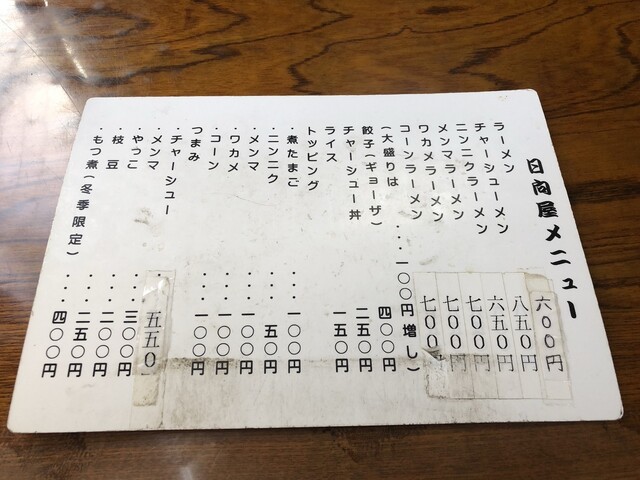 日向屋メニュー
ラーメン 六〇〇円
チャーシューメン 八五〇円
ニンニクラーメン 六五〇円
メンマラーメン 七〇〇円
ワカメラーメン 七〇〇円
コーンラーメン 七〇〇
(大盛りは・・・一〇〇円増し)
餃子(ギョーザ) 四〇〇円
チャーシュー丼 二五〇円
ライス 一五〇円
トッピング
・煮たまご・・・一〇〇円
・ニンニク・・・五〇円
・メンマ・・・一〇〇円
・ワカメ・・・一〇〇円
・コーン・・・一〇〇円
つまみ
・チャーシュー・五五〇
・メンマ・・・三〇〇円
・やっこ・・・二〇〇円
・枝豆・・・二五〇円
・もつ煮(冬季限定)・・・四〇〇円